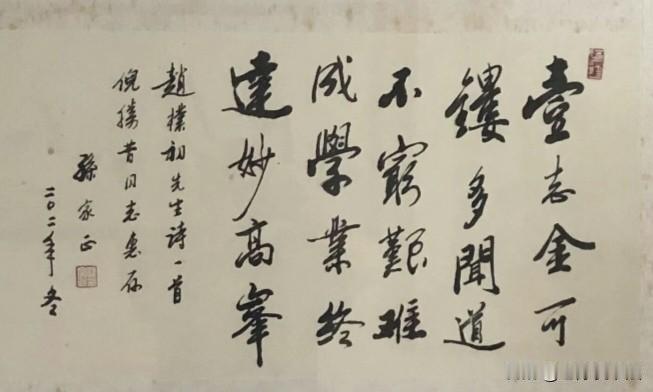 壹志金可
鏤多聞道
不窮艱難
成學業終
達妙高峯
趙樸初先生詩一首
倪 昔同志惠存
孫家正
二〇 年冬